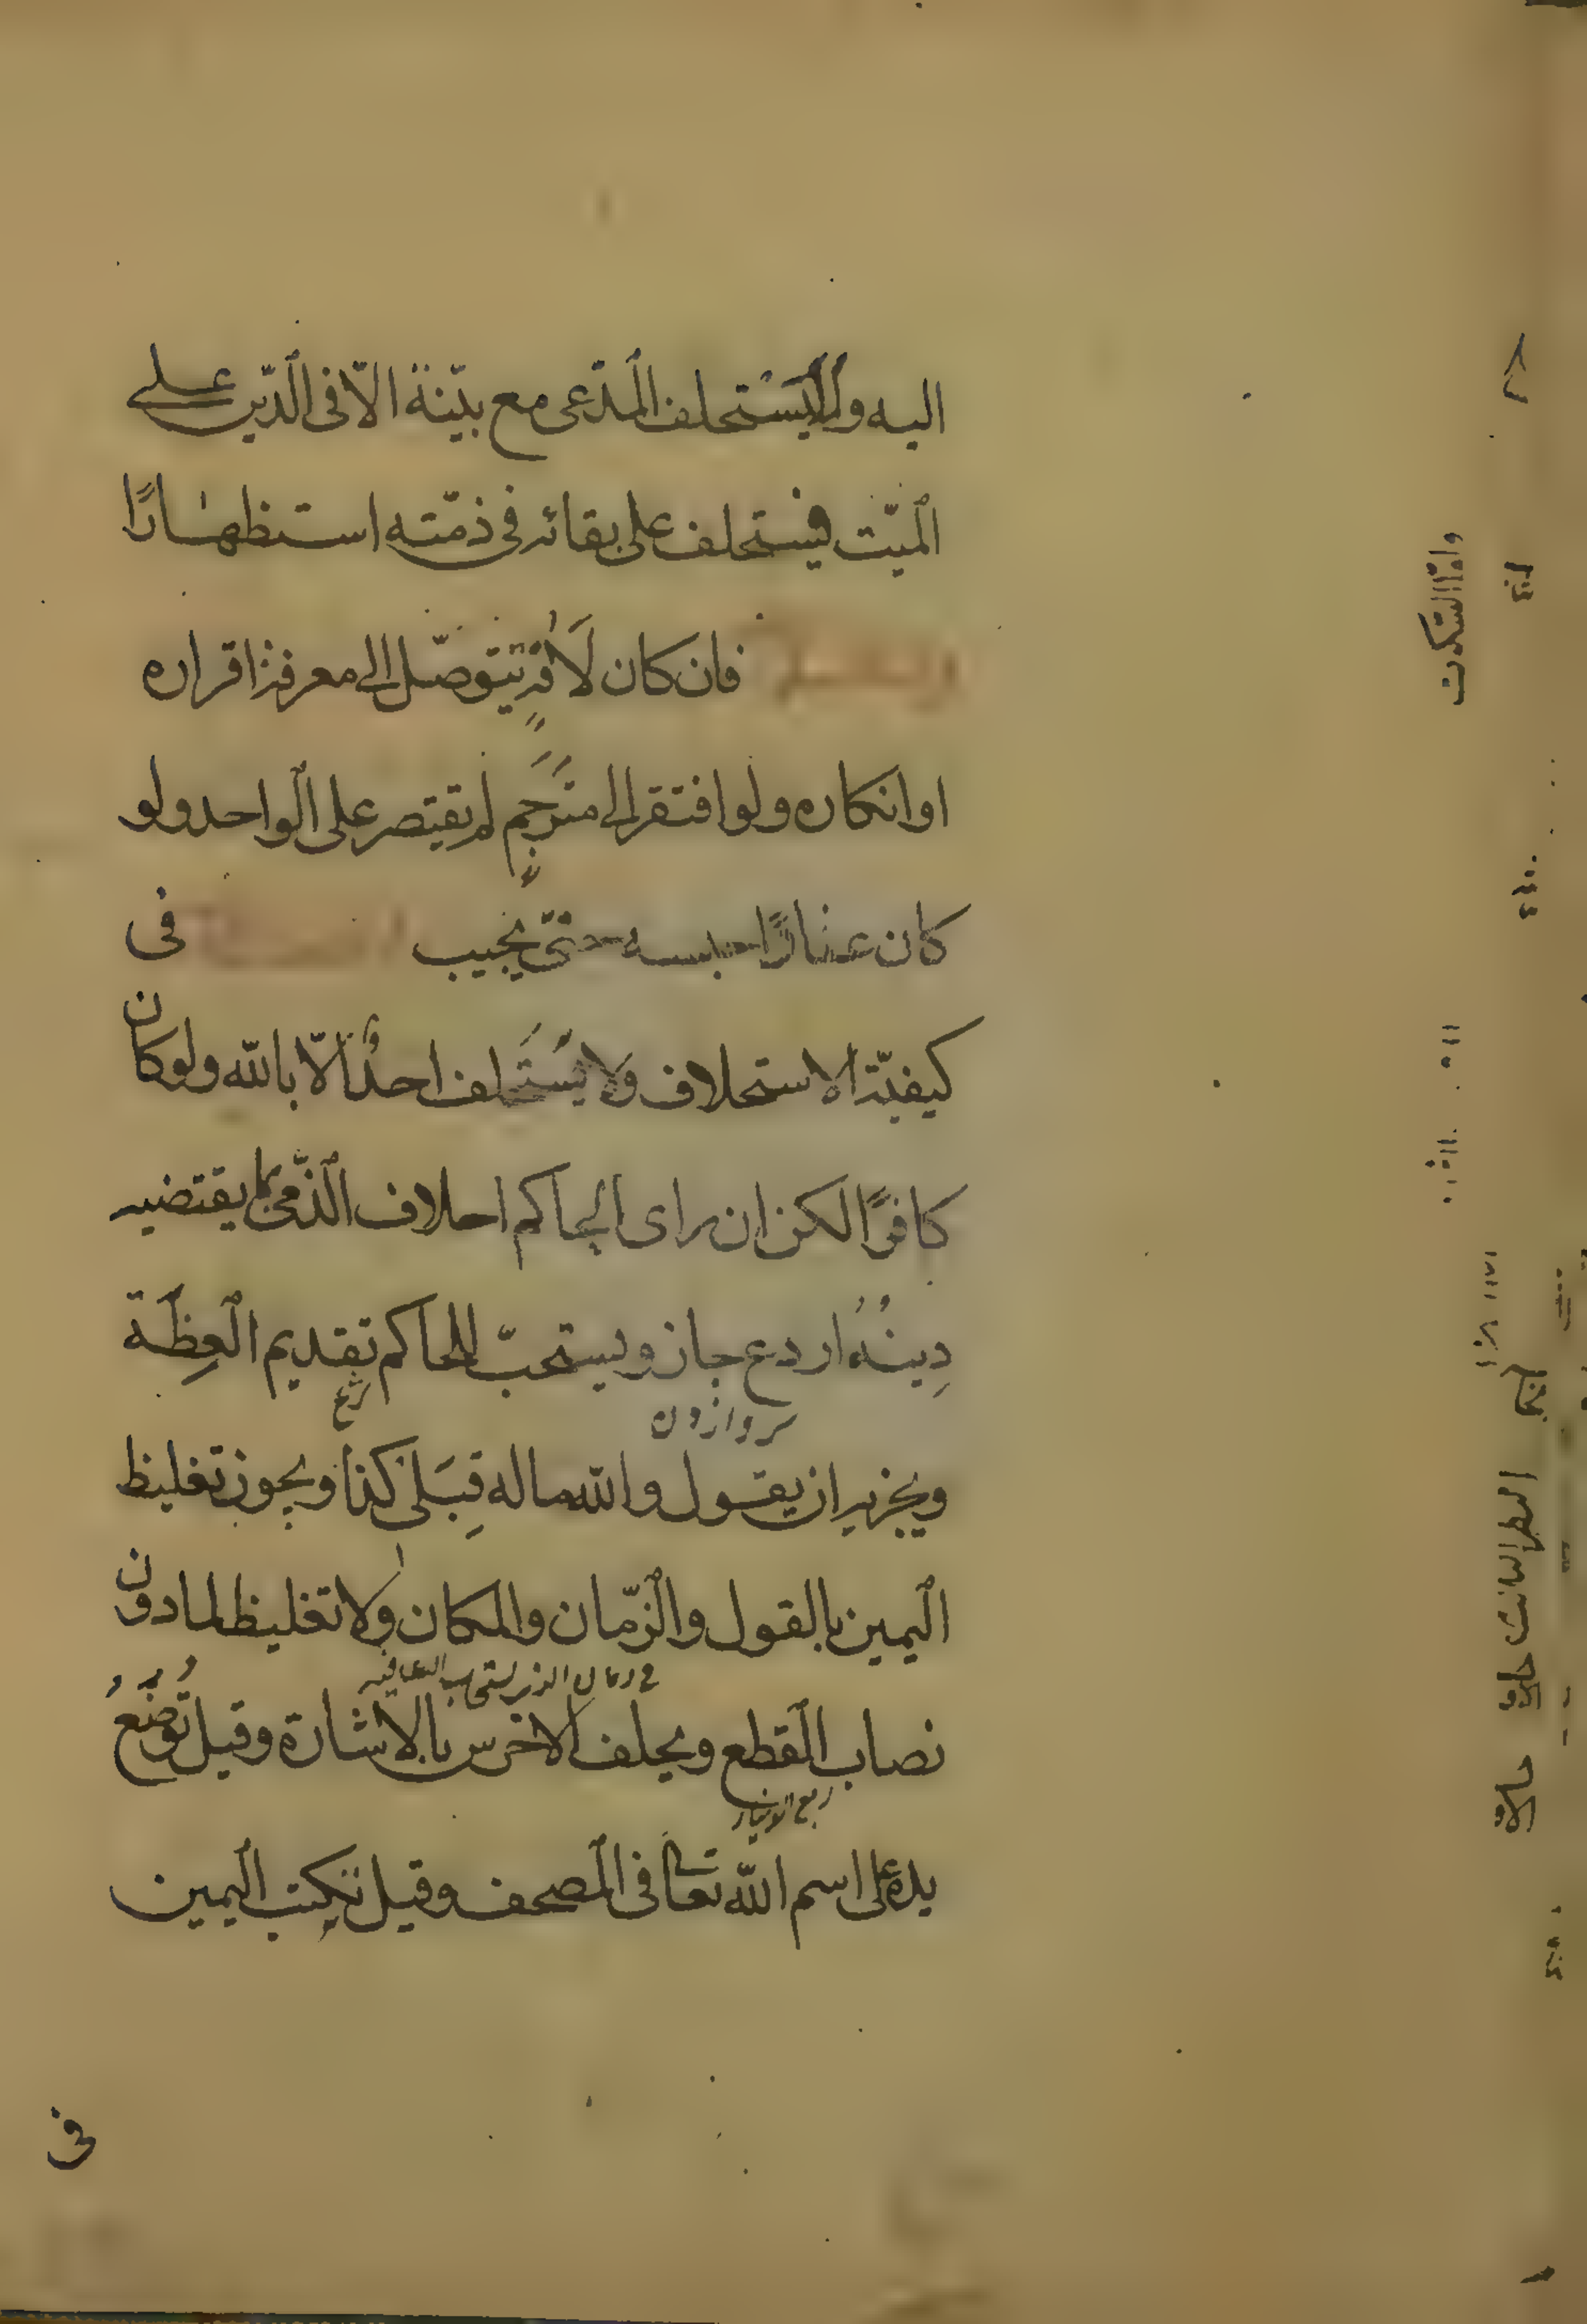 اليه ولا يُسْتحلف المدّعى مع بيّنة الّا فى الدّين على
الميّت فيستحلف على بقائه فى ذمّته استظهارًا
فان كان لآفةٍ تتوصّل الى معرفة اقراره
او انكاره ولو افتقر الى مترجم لم يقتصر على الواحد ولو
كان عنادًا حبسه حتّى يجيب فى
كيفيّة الاستحلاف ولا يُستَحلف احدٌ الّا بالله ولو كان
كافرًا لكن ان راى الحاكم احلاف الذّمى بما يقتضيه
دِينُهُ اردع جاز ويستحبّ للحاكم تقديم العِظَة
ويجزيه ان يقول والله ماله قِبَلى كذا ويجوز تغليظ
اليمين بالقول والزّمان والمكان ولا تغليظ لما دون
نصاب القطع ويحلف الاخرس بالاشارة وقيل تُوضَعُ
ربع الدينار
يده على اسم الله تعالى فى المصحف وقيل تكتب اليمين
فى
وامّا السكوت